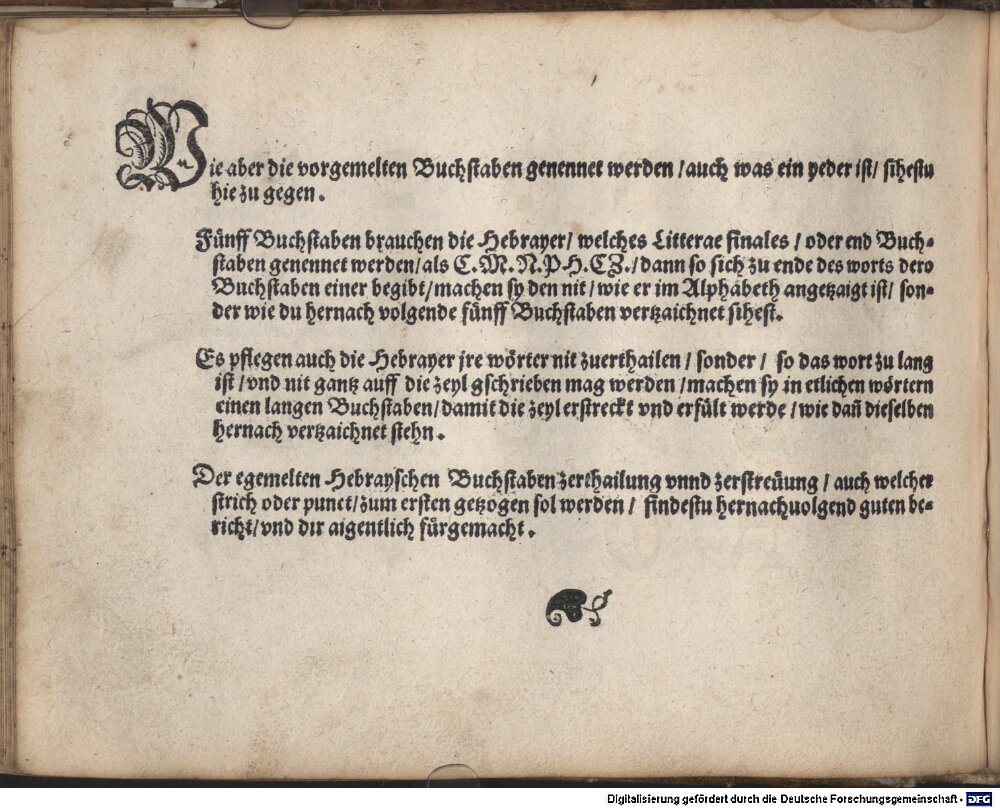 Wie aber die vorgemelten Buchstaben genennet werden / auch was ein yeder ist / sihestu
hie zu gegen .
Fünff Buchstaben brauchen die Hebrayer / welches Litterae finales / oder end Buch⸗
staben genennet werden / als C. M. N. P⸗H. CZ. / dann so sich zu ende des worts dero
Buchstaben einer begibt / machen sy den nit / wie er im Alphabeth angetzaigt ist / son⸗
der wie du hernach volgende fünff Buchstaben vertzaichnet sihest.
Es pflegen auch die Hebrayer jre wörter nit zuerthailen / sonder / so das wort zu lang
ist / vnd nit gantz auff die zeyl gschrieben mag werden / machen sy in etlichen wörtern
einen langen Buchstaben / damit die zeyl erstreckt vnd erfült werde / wie dan̄ dieselben
hernach vertzaichnet stehn .
Der egemelten Hebrayschen Buchstaben zerthailung vnnd zerstreüung / auch welcher
strich oder punct / zum ersten getzogen sol werden / findestu hernachuolgend guten be⸗
richt / vnd dir aigentlich fürgemacht .
Digitalisierung gefördert durch die Deutsche Forschungsgemeinschaft - DFG